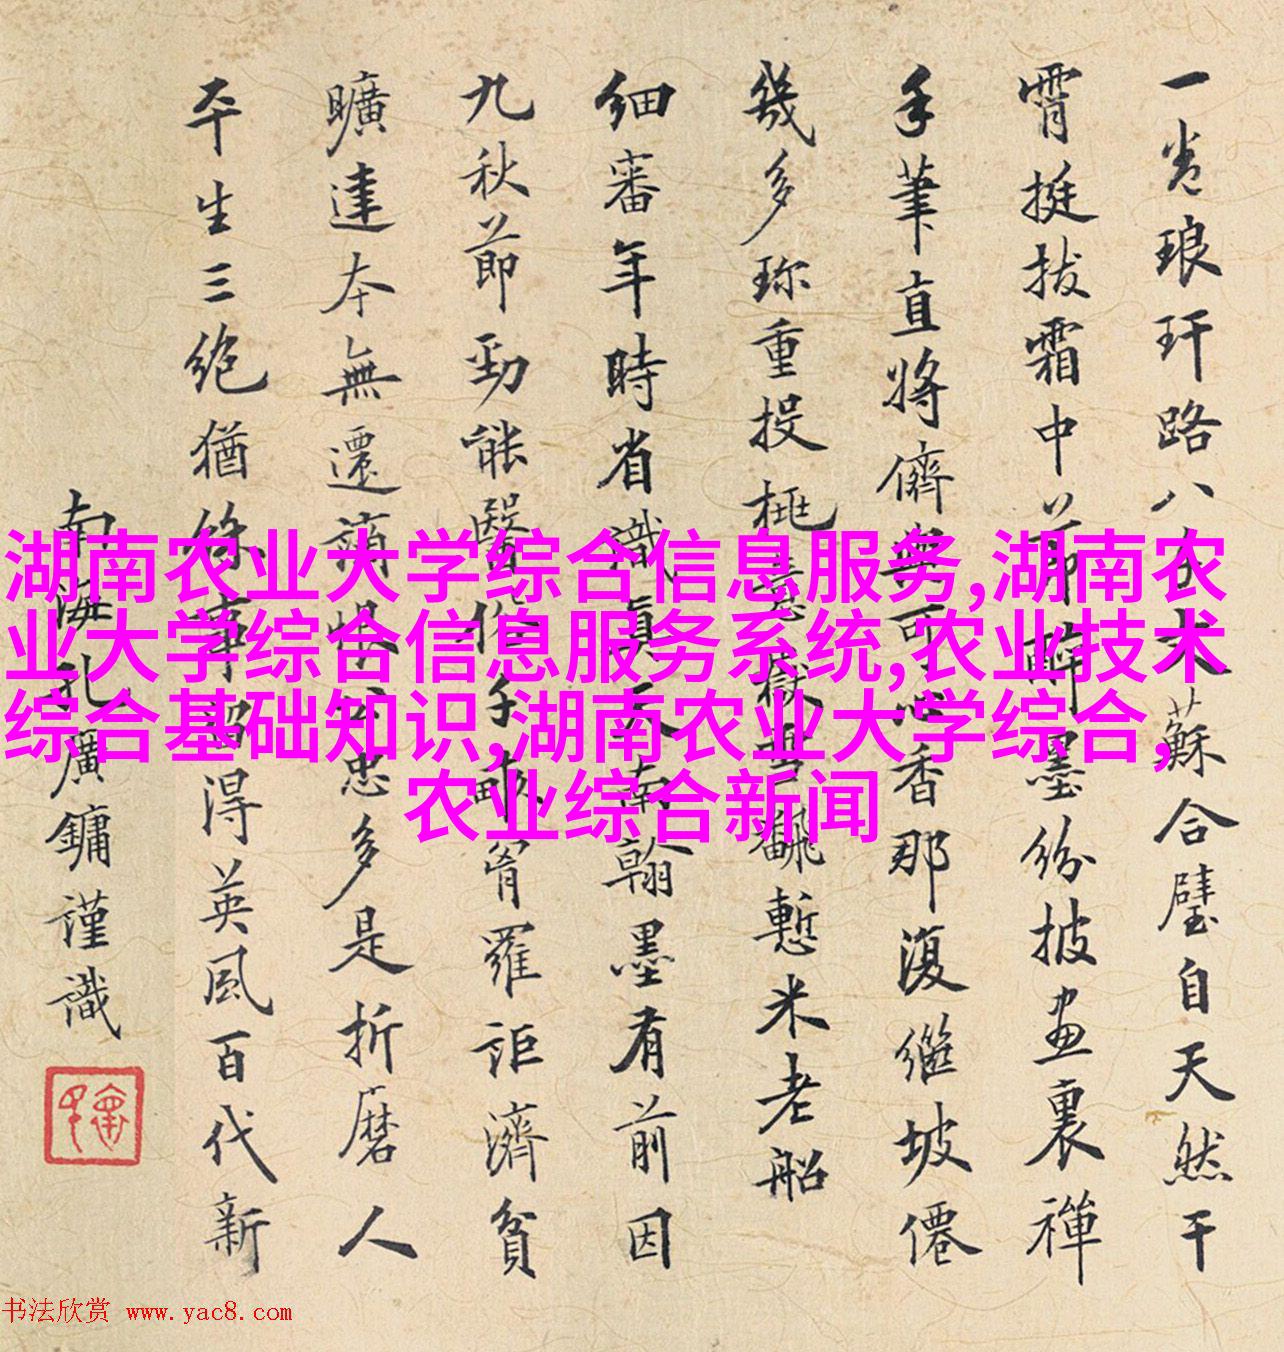 一卷琅玕路八大蘇合璧自天然干
霄挺拔霜中節醉墨紛披畫裏禪
手筆直將儕與可心香那復繼坡僊
幾多珍重投桃意嶽雪飜慙米老船
細審年時省識真天南翰墨有前因
九秋節勁能醫俗千畝胷羅詎濟貧
曠達本無遷謫恨公忠多是折磨人
平生三絕猶餘事留得英風百代新
南海孔廣鏞謹識
湖南农业大学综合信息服务,湖南农
业大学综合信息服务系统,农业技术
综合基础知识,湖南农业大学综合,
农业综合新闻
书法欣赏 www.yac8.com